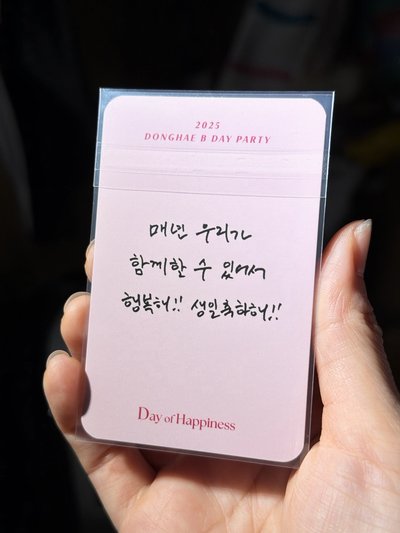 2025
DONGHAE B DAY PARTY
매년 우리가
함께할 수 있어서
행복해!! 생일축하해!!
Day of Happiness